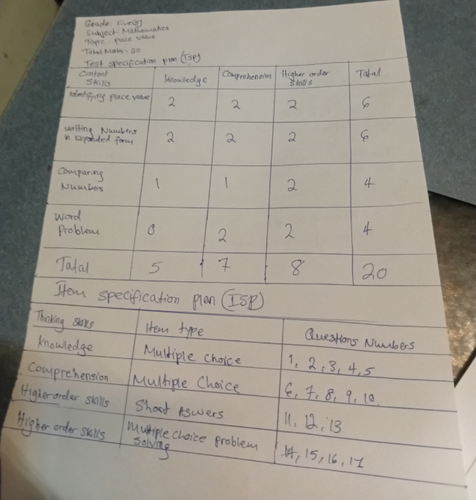 Grade: Five(5)
Subject: Mathematics
Topic: place value
Total Marks: 20
Test specification plan (TSP)
Content Skills Knowledge Comprehension Higher order Skills Total
Identifying place value 2 2 2 6
writing Numbers in Expanded form 2 2 2 6
Comparing Numbers 1 1 2 4
Word Problem 0 2 2 4
Total 5 7 8 20
Item specification plan (ISP)
Thinking skills Item type Questions Numbers
Knowledge Multiple choice 1, 2, 3, 4, 5
Comprehension Multiple Choice 6, 7, 8, 9, 10
Higher order skills Short Aswers 11, 12, 13
Higher order skills Multiple choice problem solving 14, 15, 16, 17